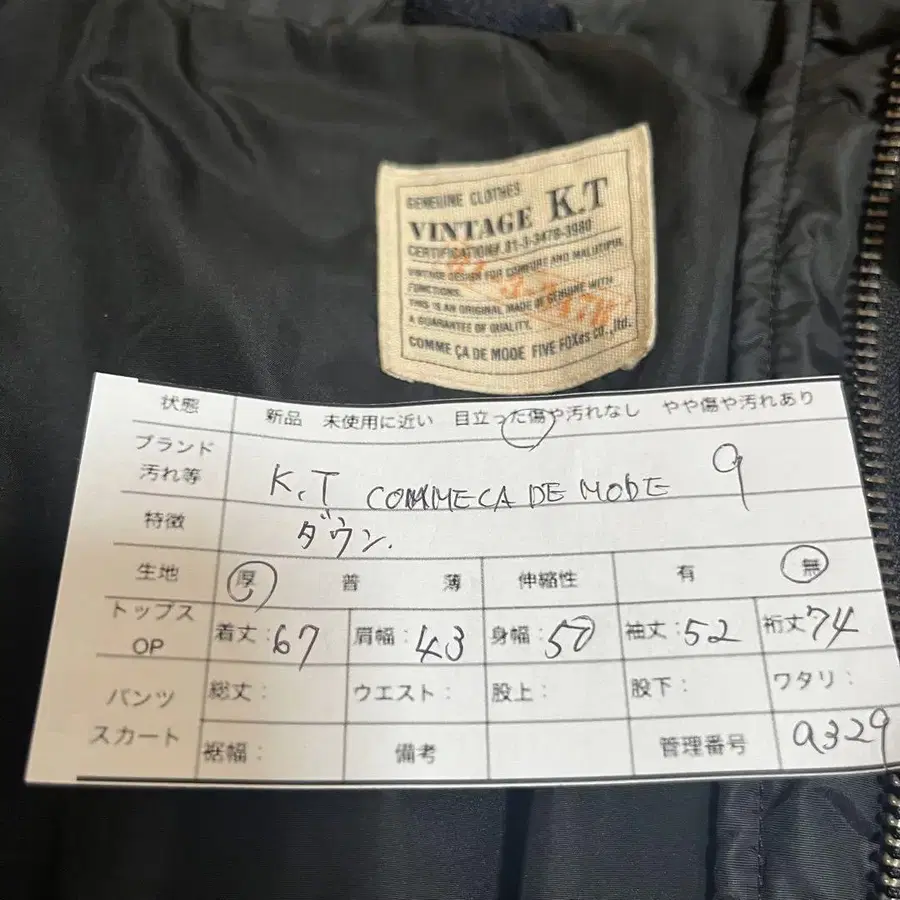 GENUINE CLOTHES
VINTAGE K.T
CERTIFICATION#.81-3-3478-3980
VINTAGE DESIGN FOR COMFORT AND
FUNCTIONS.
THIS IS AN ORIGINAL MADE OF GENUINE WITH
A GUARANTEE OF QUALITY.
COMME ÇA DE MODE FIVE FOXes co.,ltd.
状態 新品 未使用に近い 目立った傷や汚れなし やや傷や汚れあり
ブランド
汚れ等 K.T COMMECA DE MODE 9
特徴 ダウン.
生地 厚 普 薄 伸縮性 有 無
トップス
OP 着丈:67 肩幅:43 身幅:50 袖丈:52 裄丈74
パンツ 総丈: ウエスト: 股上: 股下: ワタリ:
スカート 裾幅: 備考 管理番号 a329